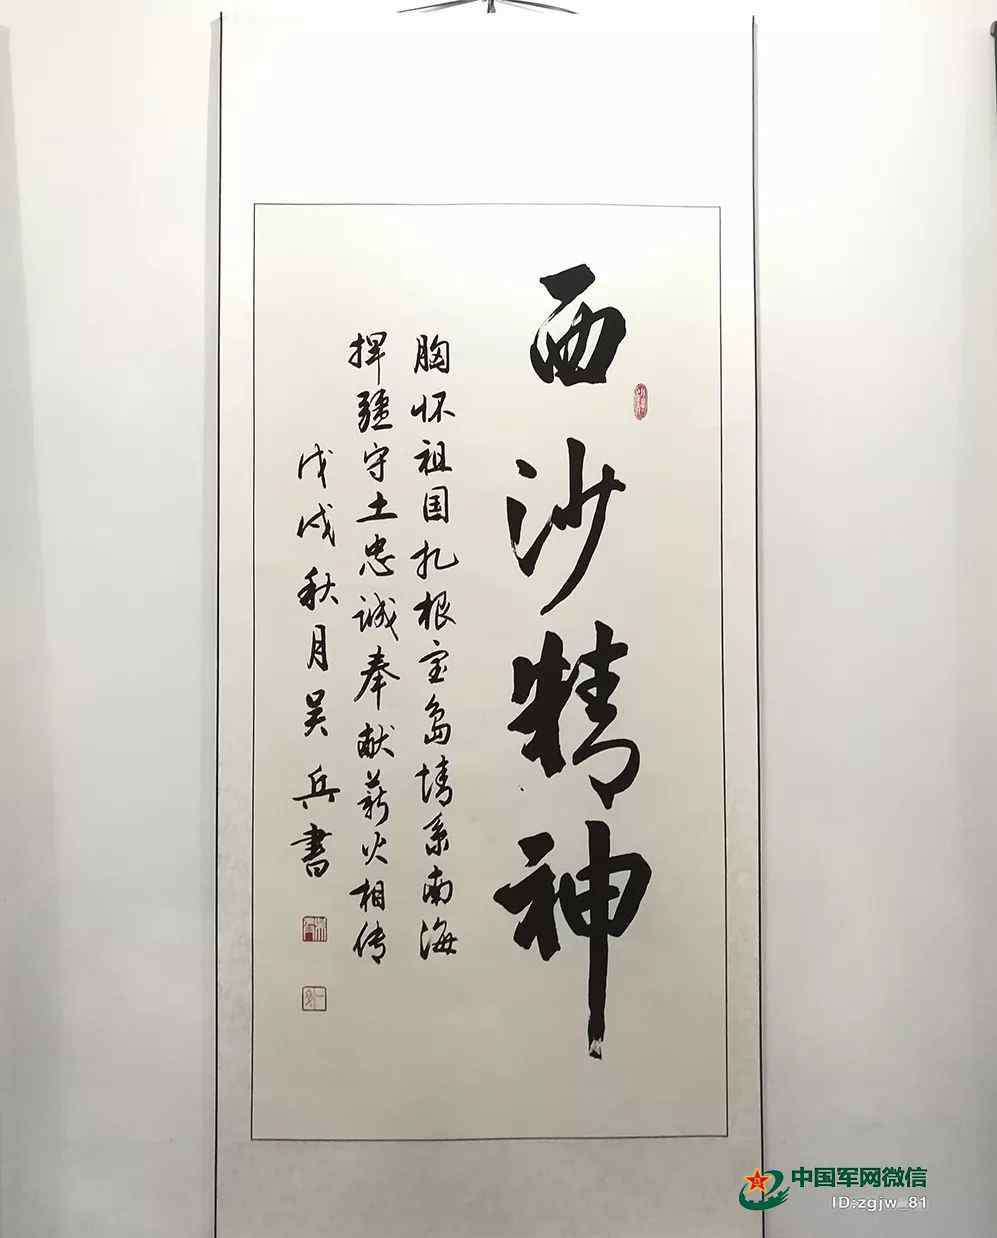 西沙精神
胸怀祖国扎根宝岛情系南海
捍疆守土忠诚奉献薪火相传
戊戌秋月吴兵書
中国军网微信
ID:zgjw_81